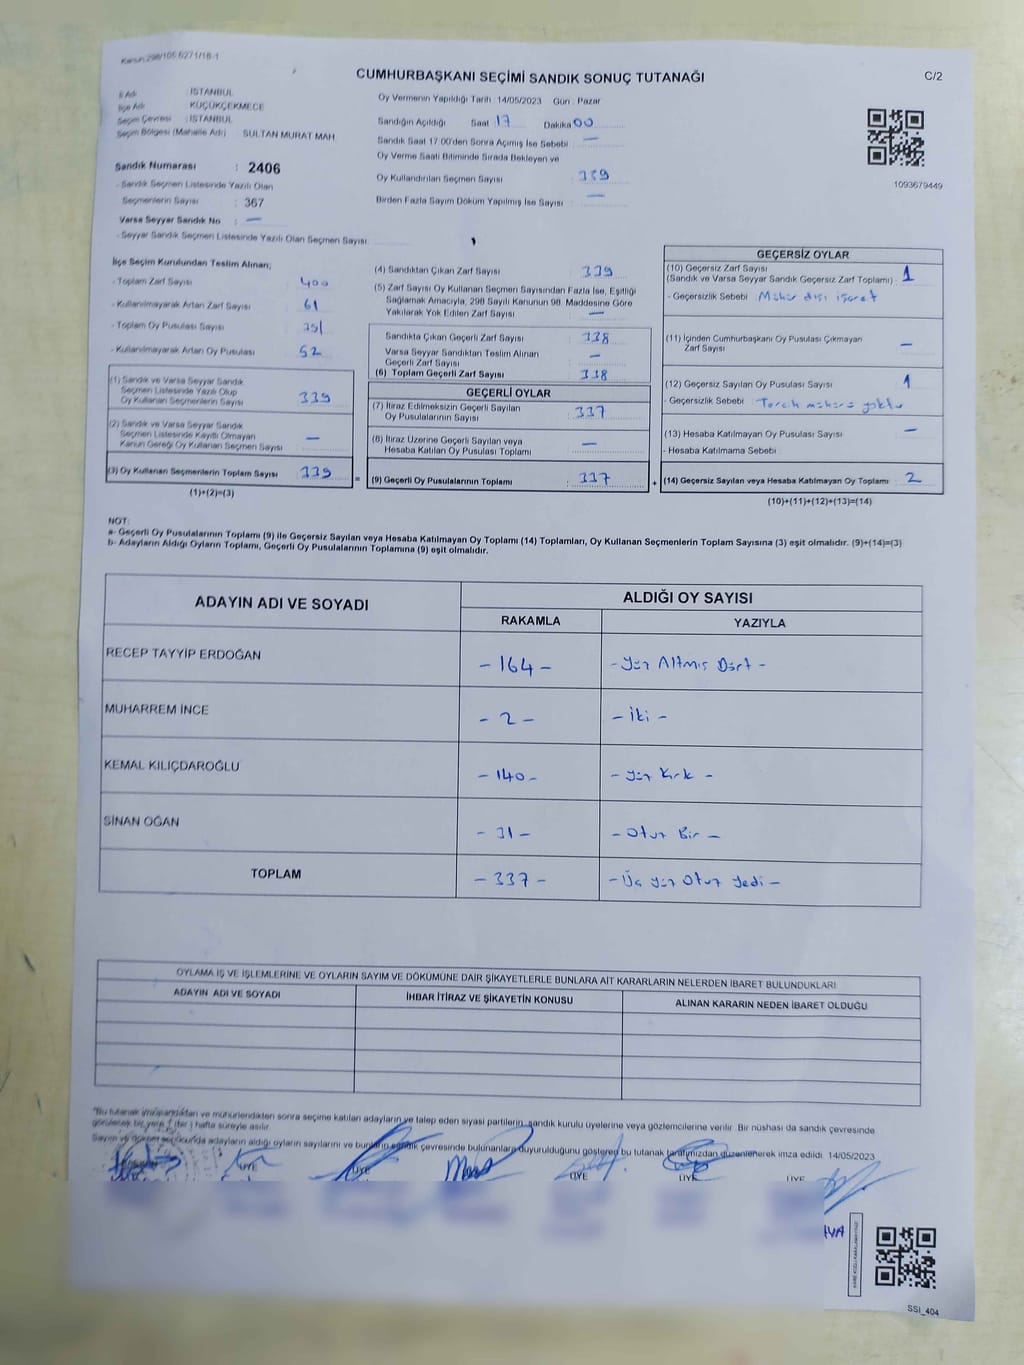 Kanun:298/105 6271/18-1
CUMHURBAŞKANI SEÇİMİ SANDIK SONUÇ TUTANAĞI
C/2
İl Adı : İSTANBUL
İlçe Adı : KÜÇÜKÇEKMECE
Seçim Çevresi : İSTANBUL
Seçim Bölgesi (Mahalle Adı) SULTAN MURAT MAH.
Sandık Numarası : 2406
- Sandık Seçmen Listesinde Yazılı Olan
Seçmenlerin Sayısı : 367
Varsa Seyyar Sandık No : —
- Seyyar Sandık Seçmen Listesinde Yazılı Olan Seçmen Sayısı
Oy Vermenin Yapıldığı Tarih 14/05/2023 Gün : Pazar
Sandığın Açıldığı Saat 17 Dakika 00
Sandık Saat 17:00'den Sonra Açılmış İse Sebebi —
Oy Verme Saati Bitiminde Sırada Bekleyen ve
Oy Kullandırılan Seçmen Sayısı
Birden Fazla Sayım Döküm Yapılmış İse Sayısı —
1093679449
İlçe Seçim Kurulundan Teslim Alınan;
- Toplam Zarf Sayısı 400
- Kullanılmayarak Artan Zarf Sayısı 61
- Toplam Oy Pusulası Sayısı 391
- Kullanılmayarak Artan Oy Pusulası 52
(1) Sandık ve Varsa Seyyar Sandık
Seçmen Listesinde Yazılı Olup
Oy Kullanan Seçmenlerin Sayısı 339
(2) Sandık ve Varsa Seyyar Sandık
Seçmen Listesinde Kayıtlı Olmayan
Kanun Gereği Oy Kullanan Seçmen Sayısı —
(3) Oy Kullanan Seçmenlerin Toplam Sayısı 339
(1)+(2)=(3)
=
(4) Sandıktan Çıkan Zarf Sayısı 339
(5) Zarf Sayısı Oy Kullanan Seçmen Sayısından Fazla İse, Eşitliği
Sağlamak Amacıyla, 298 Sayılı Kanunun 98. Maddesine Göre
Yakılarak Yok Edilen Zarf Sayısı —
Sandıkta Çıkan Geçerli Zarf Sayısı 338
Varsa Seyyar Sandıktan Teslim Alınan
Geçerli Zarf Sayısı —
(6) Toplam Geçerli Zarf Sayısı 338
GEÇERLİ OYLAR
(7) İtiraz Edilmeksizin Geçerli Sayılan
Oy Pusulalarının Sayısı 337
(8) İtiraz Üzerine Geçerli Sayılan veya
Hesaba Katılan Oy Pusulası Toplamı —
(9) Geçerli Oy Pusulalarının Toplamı 337
+
GEÇERSİZ OYLAR
(10) Geçersiz Zarf Sayısı
(Sandık ve Varsa Seyyar Sandık Geçersiz Zarf Toplamı) 1
- Geçersizlik Sebebi : Mühür dışı işaret
(11) İçinden Cumhurbaşkanı Oy Pusulası Çıkmayan
Zarf Sayısı —
(12) Geçersiz Sayılan Oy Pusulası Sayısı 1
- Geçersizlik Sebebi : Tercih mührü yoktur
(13) Hesaba Katılmayan Oy Pusulası Sayısı —
- Hesaba Katılmama Sebebi :
(14) Geçersiz Sayılan veya Hesaba Katılmayan Oy Toplamı 2
(10)+(11)+(12)+(13)=(14)
NOT:
a- Geçerli Oy Pusulalarının Toplamı (9) ile Geçersiz Sayılan veya Hesaba Katılmayan Oy Toplamı (14) Toplamları, Oy Kullanan Seçmenlerin Toplam Sayısına (3) eşit olmalıdır. (9)+(14)=(3)
b- Adayların Aldığı Oyların Toplamı, Geçerli Oy Pusulalarının Toplamına (9) eşit olmalıdır.
ADAYIN ADI VE SOYADI
ALDIĞI OY SAYISI
RAKAMLA YAZIYLA
RECEP TAYYİP ERDOĞAN - 164 - - Yüz Altmış Dört -
MUHARREM İNCE - 2 - - İki -
KEMAL KILIÇDAROĞLU - 140 - - Yüz Kırk -
SİNAN OĞAN - 31 - - Otuz Bir -
TOPLAM - 337 - - Üç Yüz Otuz Yedi -
OYLAMA İŞ VE İŞLEMLERİNE VE OYLARIN SAYIM VE DÖKÜMÜNE DAİR ŞİKAYETLERLE BUNLARA AİT KARARLARIN NELERDEN İBARET BULUNDUKLARI
ADAYIN ADI VE SOYADI İHBAR İTİRAZ VE ŞİKAYETİN KONUSU ALINAN KARARIN NEDEN İBARET OLDUĞU
"Bu tutanak imzalandıktan ve mühürlendikten sonra seçime katılan adayların ve talep eden siyasi partilerin, sandık kurulu üyelerine veya gözlemcilerine verilir. Bir nüshası da sandık çevresinde
görülecek bir yere 1 (bir) hafta süreyle asılır.
Sayım ve döküm sonucunda adayların aldığı oyların sayılarını ve bunların sandık çevresinde bulunanlara duyurulduğunu gösteren bu tutanak tarafımızdan düzenlenerek imza edildi. 14/05/2023
ÜYE ÜYE ÜYE ÜYE ÜYE
SSİ_404